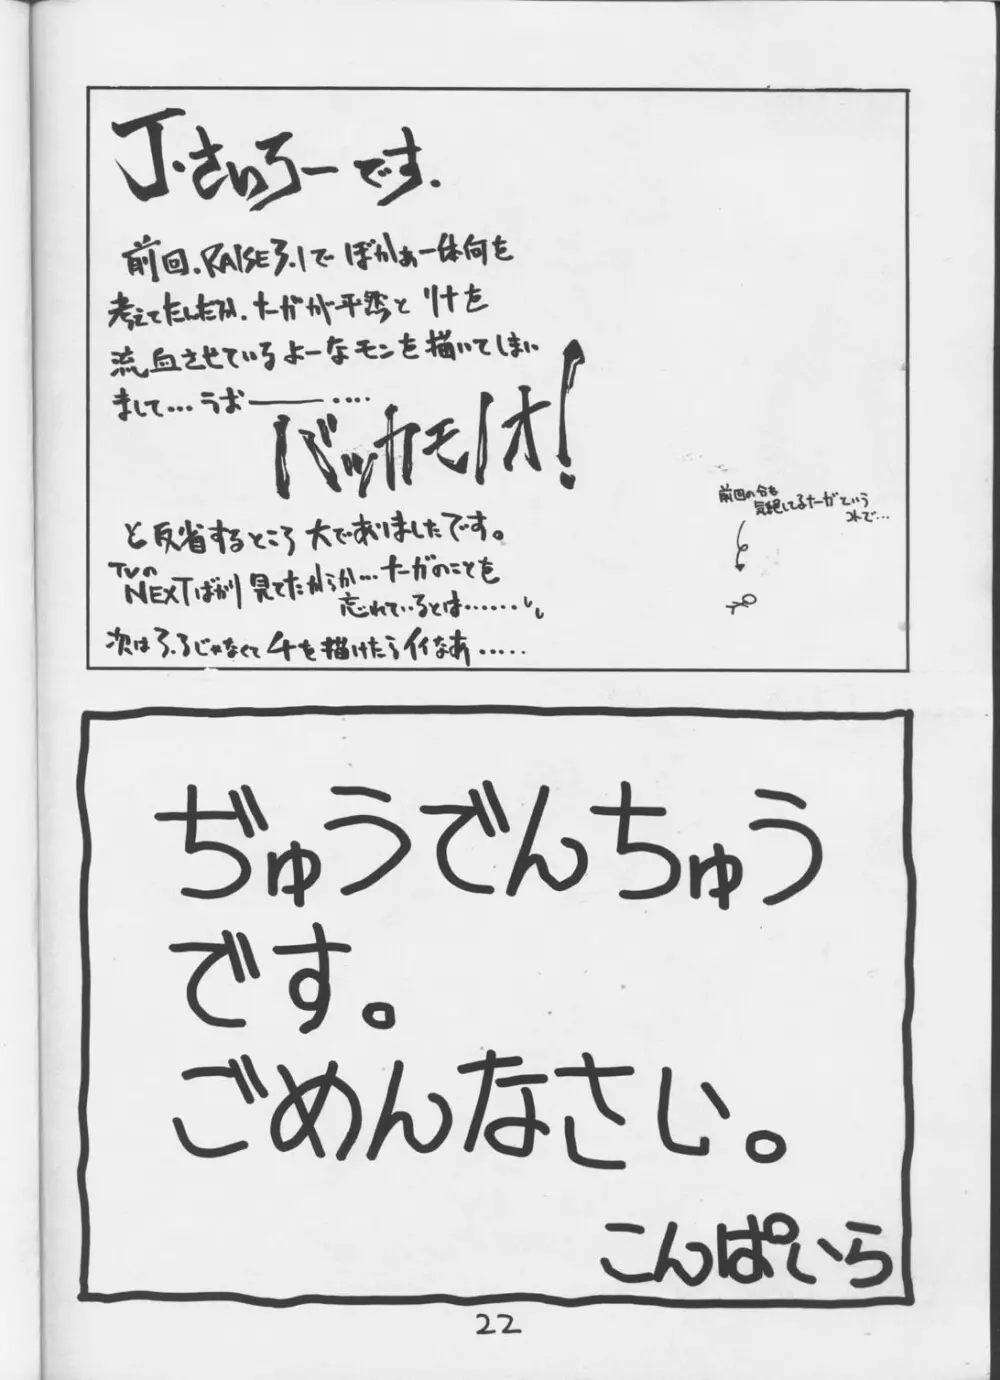 J・さいろーです.
前回.RAISE3.1で ぼかぁ一体何を
考えてたんだか.たーがが平然と リナを
流血させているよーなモンを描いてしまい
まして...うお―――....
バッカモノオ!
と反省するところ大でありましたです。
TVの
NEXTばかり見てたからか...たーがのことを
忘れているとは......
次は3.3じゃなくて4を描けたらイイなあ.....
前回の分も
気絶してるたーがという
コトで...
ぢゅうでんちゅう
です。
ごめんなさい。
こんぱいら
22